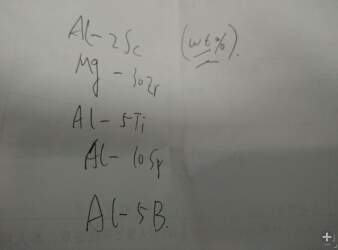 Al-2Sc (wt%).
Mg-30Zr
Al-5Ti
Al-10Sr
Al-5B.